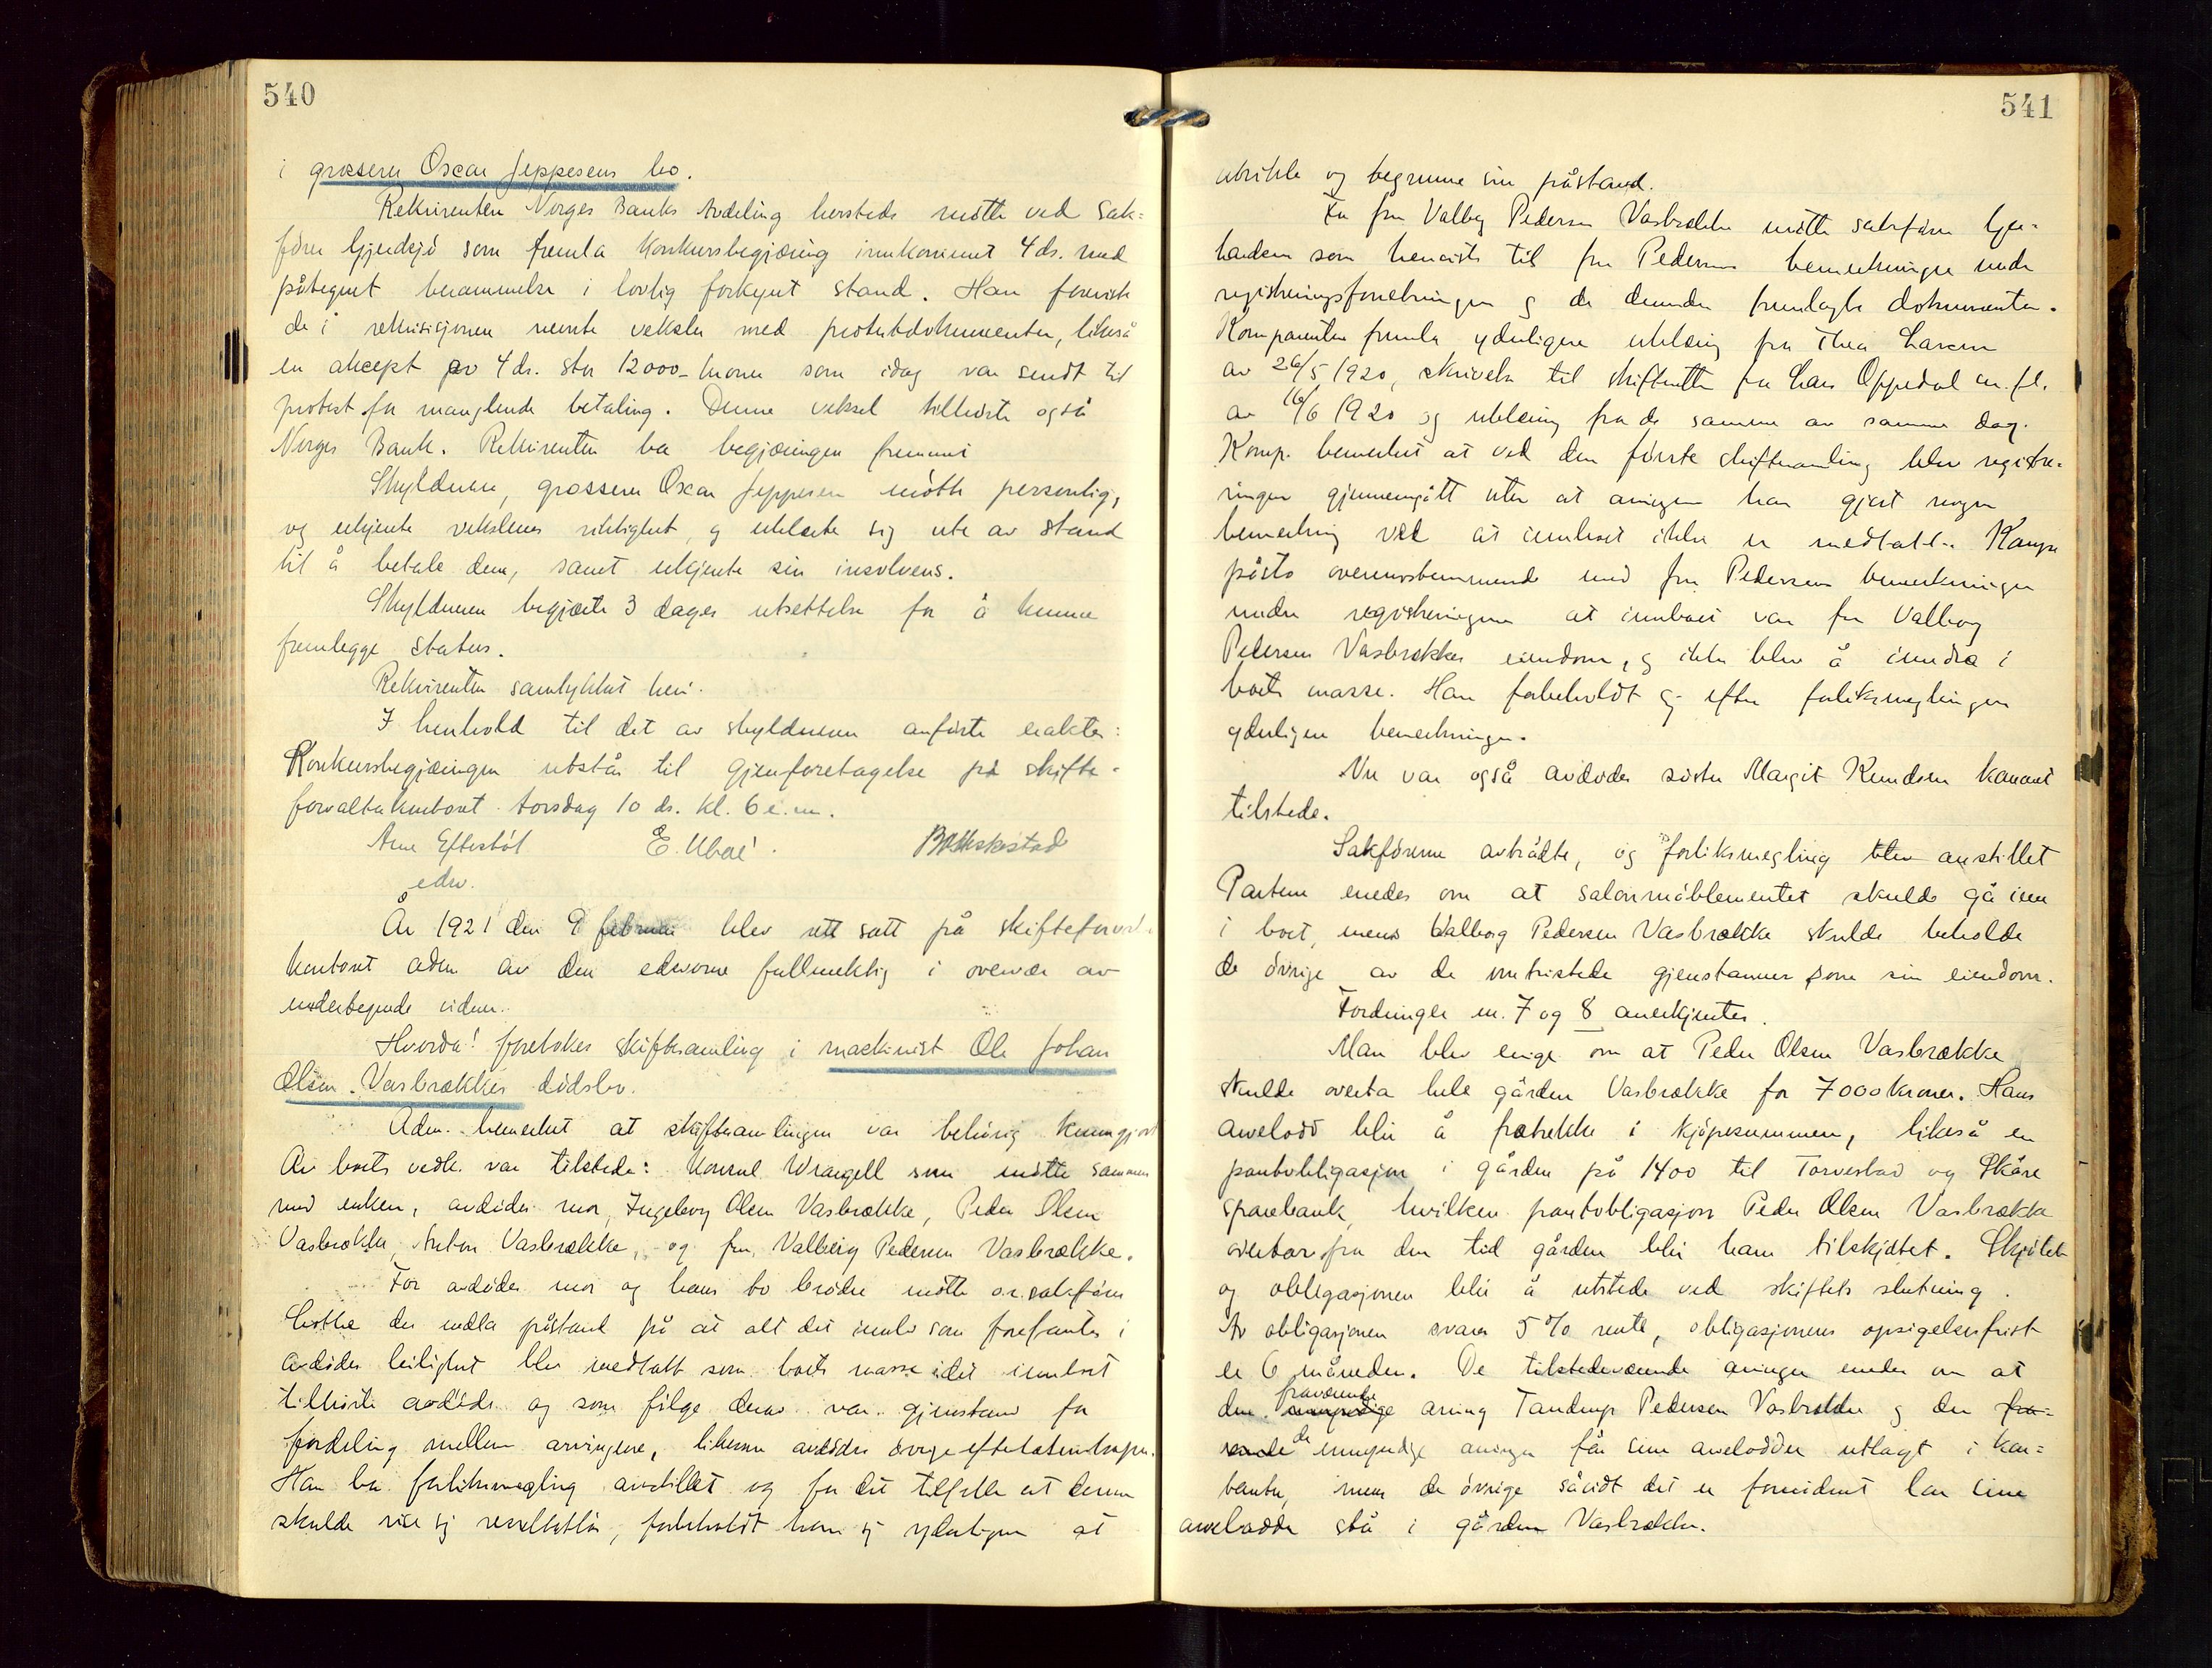 540
i grosserer Oscar Jeppesens bo.
Rekvirenten Norges Banks Avdeling hersteds møtte ved sak-
fører Gjendsjø som fremla konkursbegjæring innkommet 4 ds. med
påtegnet berammelse i lovlig forkynt stand. Han foreviste
de i rekvisisjonen nevnte veksler med protestdokumenter, likeså
en aksept av 4 ds. stor 12000 kroner som idag var sendt til
protest for manglende betaling. Denne veksel tilhørte også
Norges Bank. Rekvirenten ba begjæringen fremmet
Skyldneren, grosserer Oscar Jeppesen møtte personlig,
og erkjente vekslenes riktighet, og erklærte sig ute av stand
til å betale dem, samt erkjente sin insolvens.
Skyldneren begjærte 3 dages utsettelse for å kunne
fremlegge status.
Rekvirenten samtykket heri.
I henhold til det av skyldneren anførte eraktes:
Konkursbegjæringen utstår til gjenforetagelse på skifte-
forvalterkontoret torsdag 10 ds. kl. 6 e.m.
Arne Eftestøl E. Ubøe
edsv.
År 1921 den 9 februar blev rett satt på skifteforv.
kontoret adm. av den edsvorne fullmektig i overvær av
undertegnede vidner.
Hvorda! foretokes skiftesamling i maskinist Ole Johan
Olsen Vasbrækkes dødsbo.
Adm. bemerket at skiftesamlingen var behørig kunngjort
Av boets vedk. var tilstede: Konsul Wrangell som møtte sammen
med enken, avdødes mor, Ingeborg Olsen Vasbrække, Peder Olsen
Vasbrække, Anton Vasbrække, og fru Valborg Pedersen Vasbrække.
For avdødes mor og hans to brødre møtte o.r.sakfører
Lothe der nedla påstand på at alt det innbo som forefantes i
avdødes leilighet blev medtatt som boets masse idet innboet
tilhørte avdøde og som følge derav var gjenstand for
fordeling mellem arvingene, likesom avdødes øvrige efterlatenskaper.
Han ba forliksmegling anstillet og for det tilfelle at denne
skulde vise sig resultatløs, forbeholdt han sig yderligere at
541
utvikle og begrunne sin påstand.
For fru Valborg Pedersen Vasbrække møtte sakfører
som henviste til fru Pedersens bemerkninger under
registreringsforretningen og de derunder fremlagte dokumenter.
Komparenten fremla yderligere erklæring fra Thea Larsen
av 26/5 1920, skrivelse til skifteretten fra Lars Oppedal m. fl.
av 16/6 1920 og erklæring fra de samme av samme dag.
Komp. bemerket at ved den første skiftesamling blev registre-
ringen gjennemgått uten at arvingene har gjort nogen
bemerkning ved at innboet ikke er medtatt. Komp.
påsto overensstemmende med fru Pedersens bemerkninger
under registreringen at innboet var fru Valborg
Pedersen Vasbrækkes eiendom, og ikke blev å inndra i
boets masse. Han forbeholdt sig efter forliksmeglingen
yderligere bemerkninger.
Nu var også avdødes søster Margit Knudsen kommet
tilstede.
Sakførerne avtrådte, og forliksmegling blev anstillet
Partene enedes om at salonmøblementet skulde gå inn
i boet, mens Valborg Pedersen Vasbrække skulde beholde
de øvrige av de omtvistede gjenstanner som sin eiendom.
Fordringer nr. 7 og 8 anerkjentes.
Man blev enige om at Peder Olsen Vasbrække
skulde overta hele gården Vasbrække for 7000 kroner. Hans
arvelodd blir å fratrekke i kjøpesummen, likeså en
pantobligasjon i gården på 1400 til Torvestad og Skåre
sparebank, hvilken pantobligasjon Peder Olsen Vasbrække
overtar fra den tid gården blir ham tilskjøtet. Skjøtet
og obligasjonen blir å utstede ved skiftets slutning.
Av obligasjonen svares 5% rente, obligasjonens opsigelsesfrist
er 6 måneder. De tilstedeværende arvinger enedes om at
den fraværende arving Tandrup Pedersen Vasbrække og den fra-
de umyndige arvinger får sine arvelodder utlagt i kon-
tanter, mens de øvrige såvidt det er fornødent lar sine
arvelodder stå i gården Vasbrække.